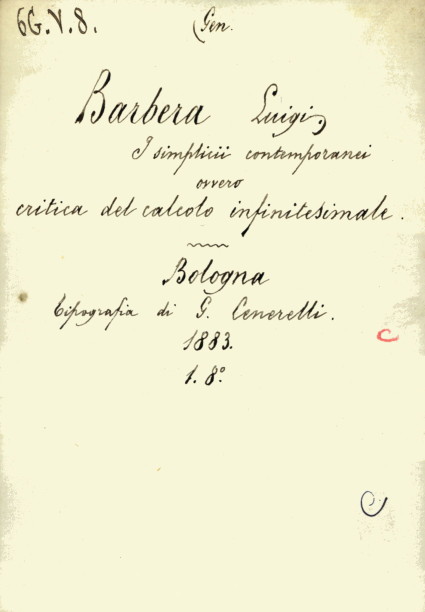 6G.V.8. (Gen.
Barbera Luigi,
I simplicii contemporanei
ovvero
critica del calcolo infinitesimale.
Bologna
Tipografia di G. Cenerelli.
1883.
1. 8º
C
C